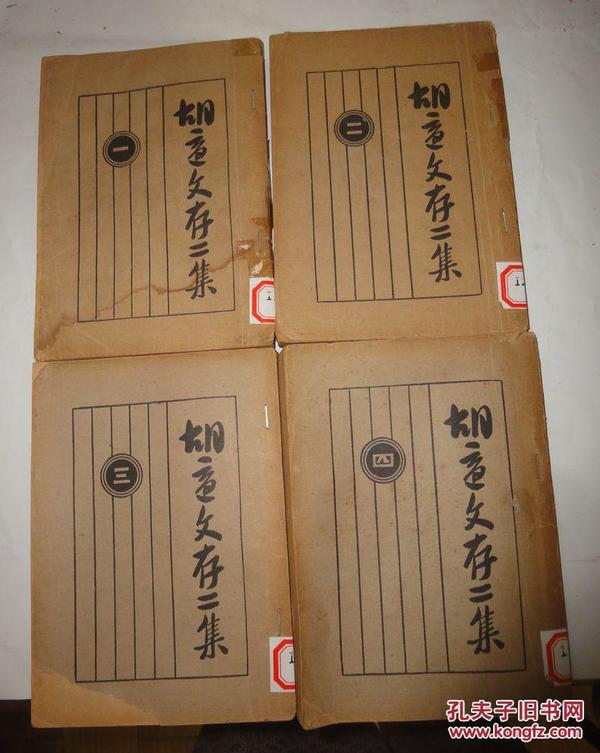 胡适文存二集
一
胡适文存二集
二
胡适文存二集
三
胡适文存二集
四
孔夫子旧书网
www.kongfz.com